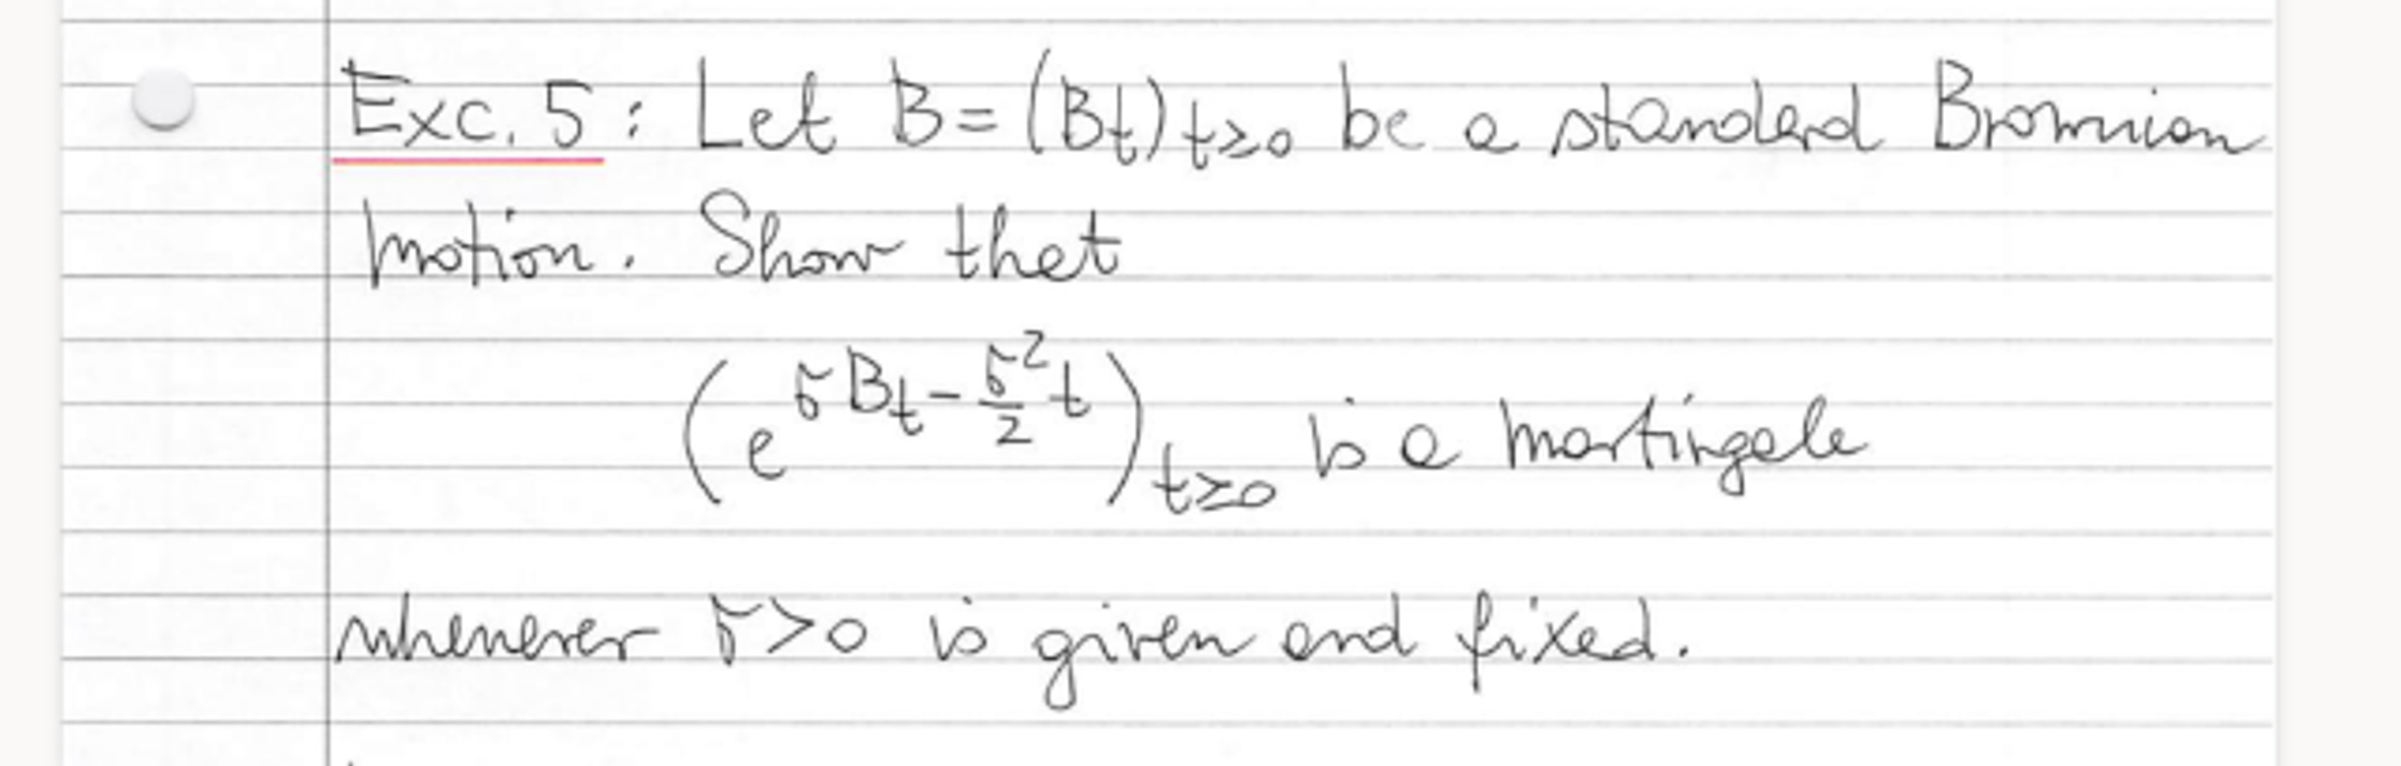 Exc. 5: Let B = (Bt)t≥0 be a standard Brownian
motion. Show that
(e^{σBt - σ²/2 t})t≥0 is a martingale
whenever σ>0 is given and fixed.